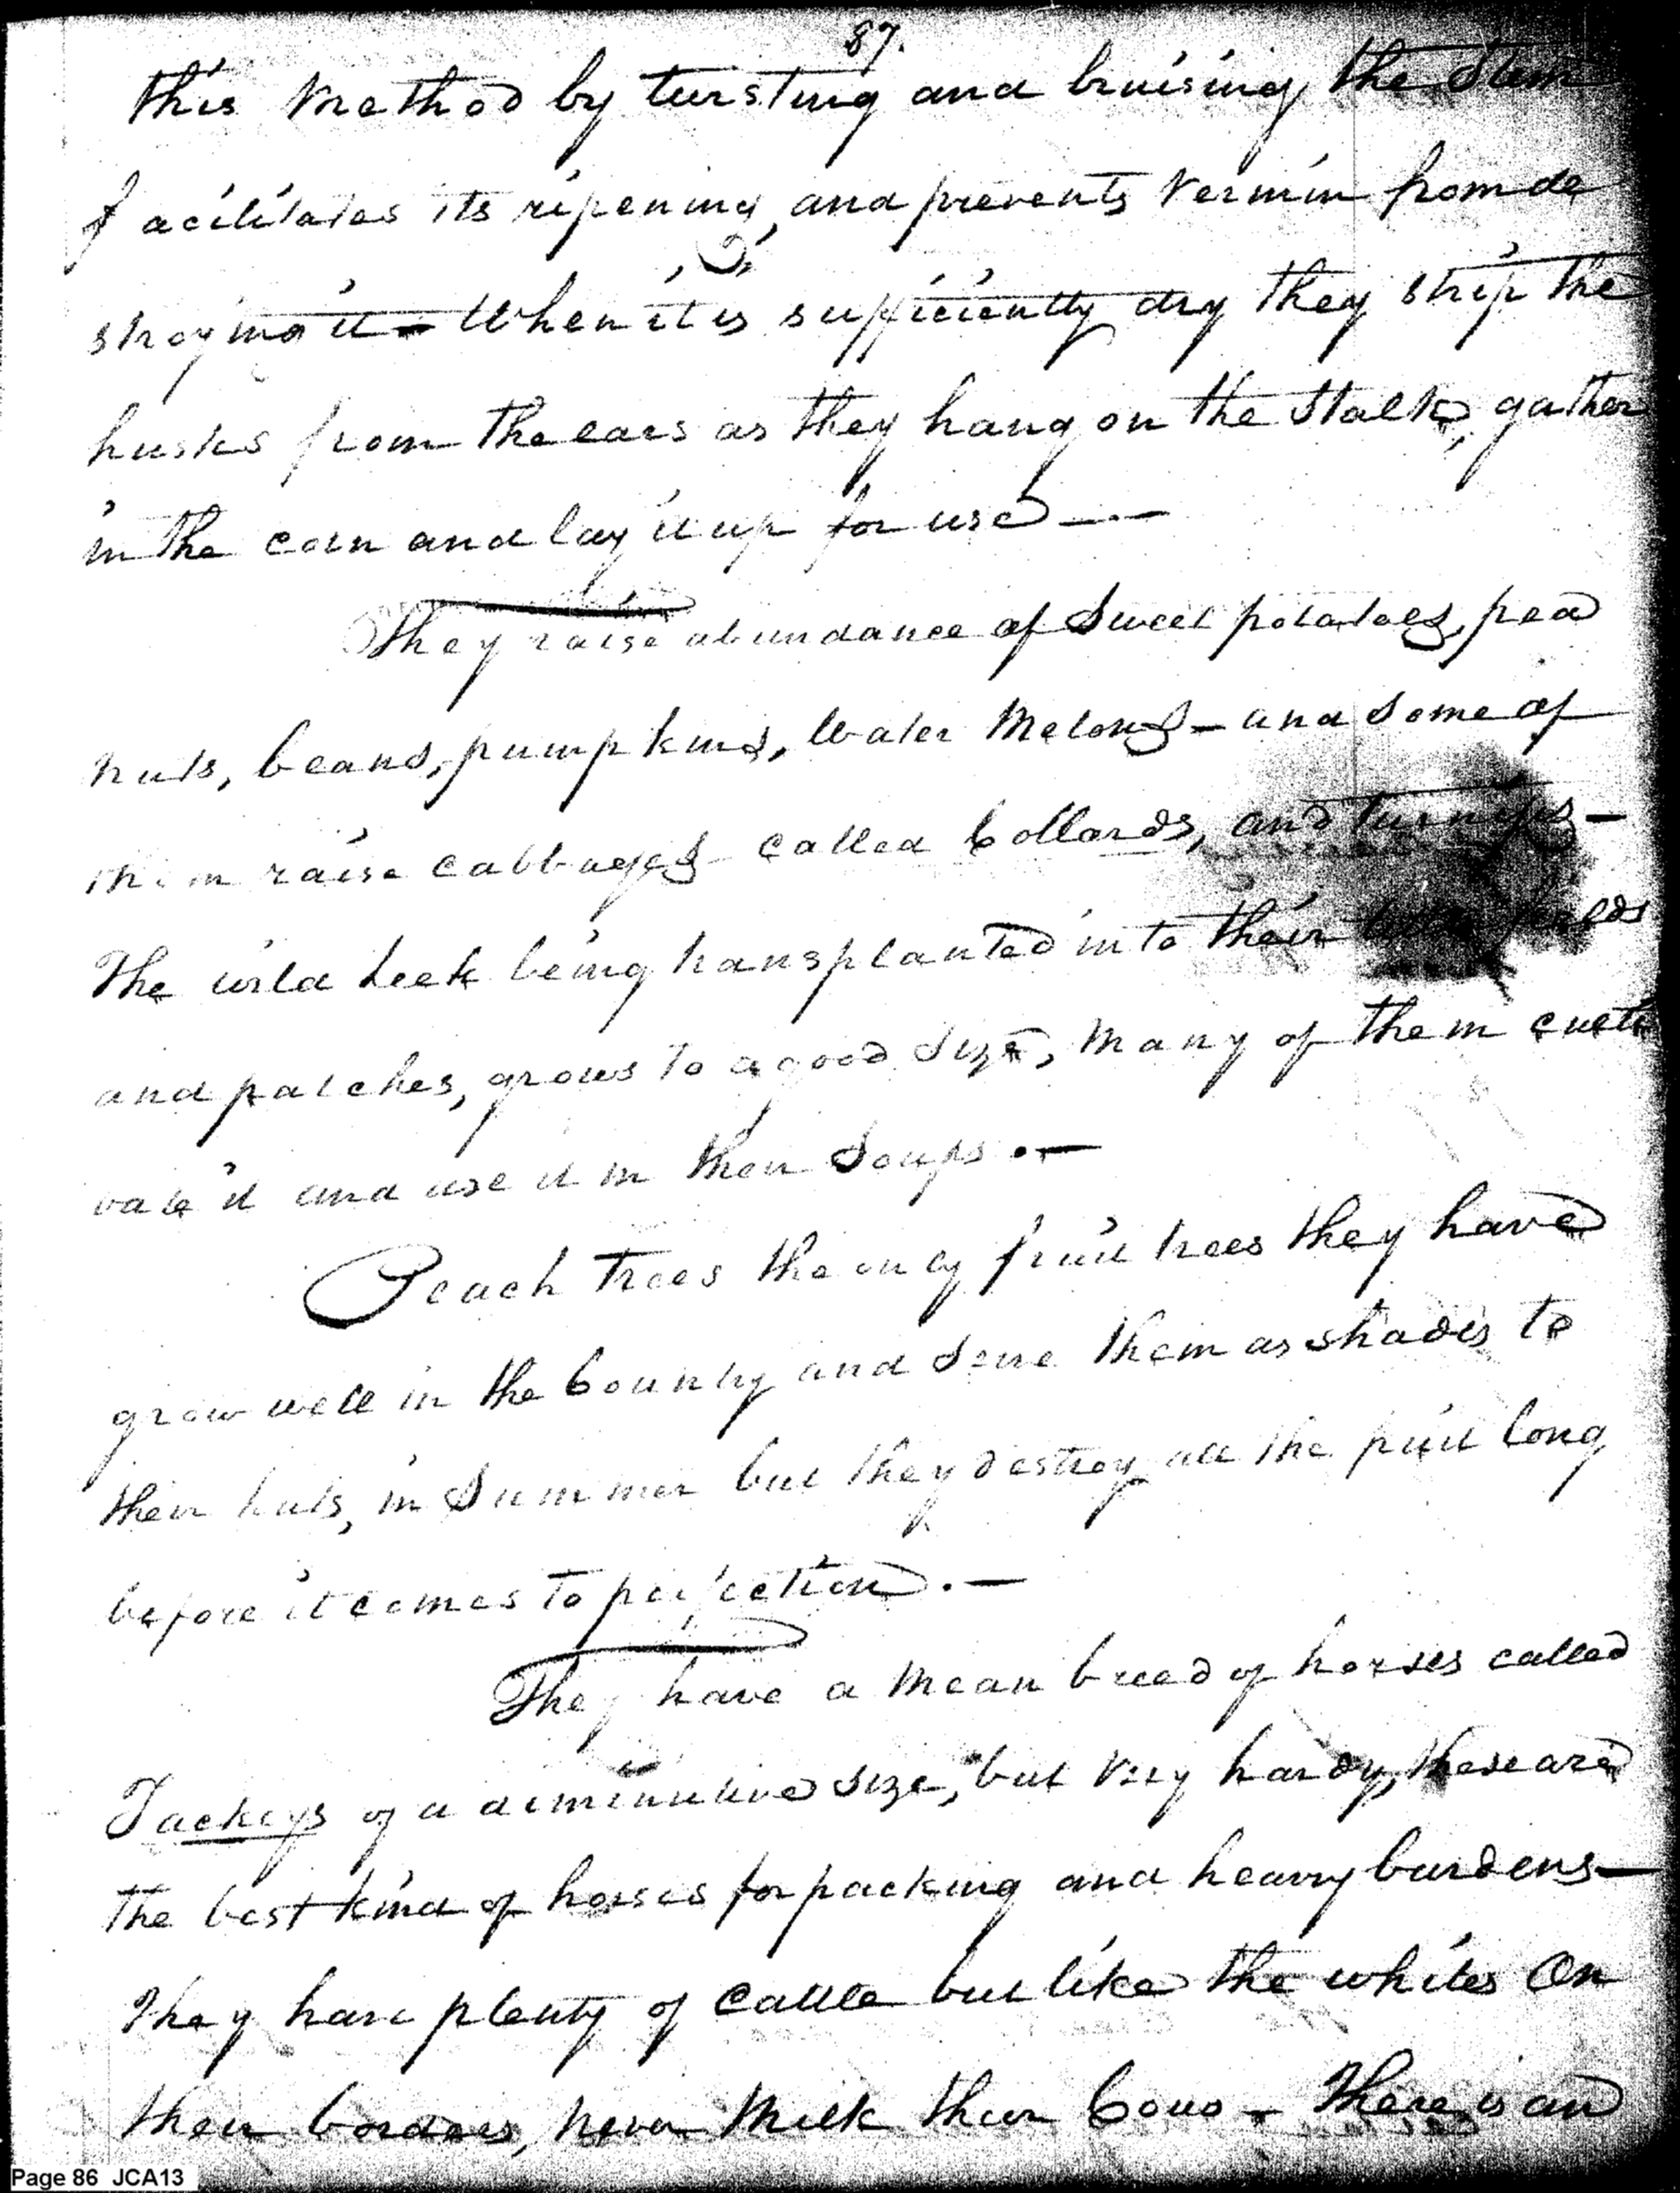 87.
this Method by twisting and bruising the Stem
facilitates its ripening, and prevents Vermin from de
stroying it - When it is sufficiently dry they strip the
husks from the ears as they hang on the Stalk, gather
in the corn and lay it up for use —
They raise abundance of Sweet potatoes, pea
nuts, beans, pumpkins, Water Melons - and some of
them raise cabbages called Collards, and turnips -
The wild Leek being transplanted into their fields
and patches, grows to a good Size, Many of them culti
vate it and use it in their Soups . —
Peach Trees the only fruit trees they have
grow well in the Country and Serve them as shades to
their huts, in Summer but they destroy all the fruit long
before it comes to perfection . —
They have a Mean breed of horses called
Tackeys of a diminutive size, but very hardy, these are
the best kind of horses for packing and heavy burdens —
They have plenty of Cattle but like the whites On
their borders, never Milk their Cows - There is an
Page 86 JCA13